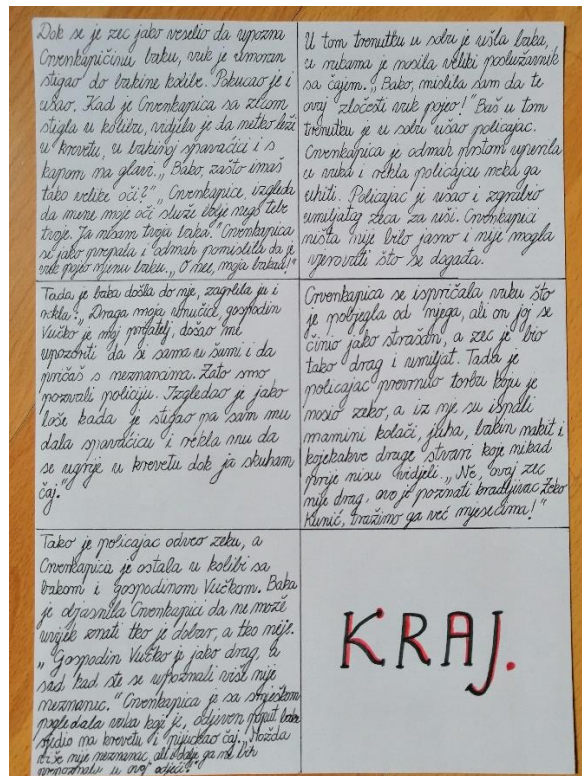 Dok se je zec jako veselio da upozna
Crvenkapičinu baku, vuk je umoran
stigao do bakine kolibe. Pokucao je i
ušao. Kad je Crvenkapica sa zecom
stigla u kolibu, vidjela je da netko leži
u krevetu, u bakinoj spavaćici i s
kapom na glavi. „Bako, zašto imaš
tako velike oči?" „Crvenkapice, izgleda
da mene moje oči služe bolje nego tebe
tvoje. Ja nisam tvoja baka." Crvenkapica
se jako prepala i odmah pomislila da je
vuk pojeo njenu baku. „O nee, moja baka!"
U tom trenutku u sobu je ušla baka,
u rukama je nosila veliki poslužavnik
sa čajem. „Bako, mislila sam da te
ovaj zločesti vuk pojeo!" Baš u tom
trenutku je u sobu ušao policajac.
Crvenkapica je odmah prstom uperila
u vuka i rekla policajcu neka ga
uhiti. Policajac je ušao i zgrabio
umiljatog zeca za uši. Crvenkapici
ništa nije bilo jasno i nije mogla
vjerovati što se događa.
Tada je baka došla do nje, zagrlila ju i
rekla: „Draga moja unučice, gospodin
Vučko je moj prijatelj, došao me
upozoriti da si sama u šumi i da
pričaš s neznancima. Zato smo
pozvali policiju. Izgledao je jako
loše kada je stigao pa sam mu
dala spavaćicu i rekla mu da
se ugrije u krevetu dok ja skuham
čaj."
Crvenkapica se ispričala vuku što
je pobjegla od njega, ali on joj se
činio jako strašan, a zec je bio
tako drag i umiljat. Tada je
policajac prevrnuo torbu koju je
nosio zeko, a iz nje su ispali
mamini kolači, juha, bakin nakit i
kojekakve druge stvari koje nikad
prije nisu vidjeli. „Ne, ovaj zec
nije drag, ovo je poznati kradljivac Zeko
Kunić, tražimo ga već mjesecima!"
Tako je policajac odveo zeku, a
Crvenkapica je ostala u kolibi sa
bakom i gospodinom Vučkom. Baka
je objasnila Crvenkapici da ne može
uvijek znati tko je dobar, a tko nije.
„Gospodin Vučko je jako drag, a
sad kad ste se upoznali više nije
neznanac." Crvenkapica je sa smješkom
pogledala vuka koji je, odjeven poput bake
sjedio na krevetu i pijuckao čaj. Možda
više nije neznanac, ali i dalje ga ne bih
prepoznala u ovoj odjeći!
KRAJ.